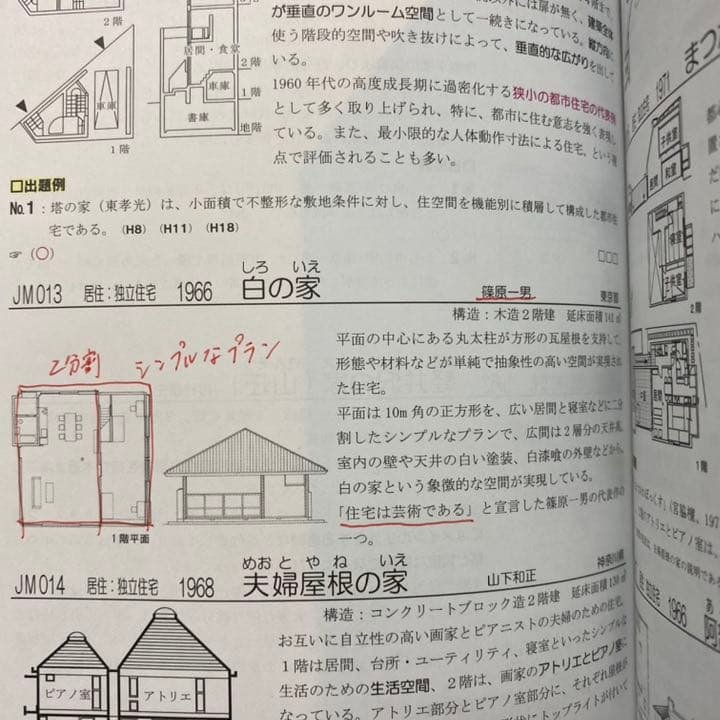 2階
居間・食堂
2階
車庫
1階
車庫
書庫
1階
地階
には扉が無く、建築全体
が垂直のワンルーム空間として一続きになっている。縦方向に
使う階段的空間や吹き抜けによって、垂直的な広がりを出して
いる。
1960年代の高度成長期に過密化する狭小の都市住宅の代表例
として多く取り上げられ、特に、都市に住む意志を強く表現し
ている。また、最小限的な人体動作寸法による住宅、という視
点で評価されることも多い。
□出題例
No.1：塔の家（東孝光）は、小面積で不整形な敷地条件に対し、住空間を機能別に積層して構成した都市住
宅である。（H8）（H11）（H18）
☞（○）
□□□
しろ いえ
JM013 居住：独立住宅 1966 白の家 篠原一男 東京都
構造：木造2階建 延床面積141㎡
2分割 シンプルなプラン
平面の中心にある丸太柱が方形の瓦屋根を支持して、
形態や材料などが単純で抽象性の高い空間が実現され
た住宅。
平面は10m角の正方形を、広い居間と寝室などに二分
割したシンプルなプランで、広間は2層分の天井高、
室内の壁や天井の白い塗装、白漆喰の外壁などから、
白の家という象徴的な空間が実現している。
「住宅は芸術である」と宣言した篠原一男の代表作の
一つ。
1階平面
めおとやね いえ
JM014 居住：独立住宅 1968 夫婦屋根の家 山下和正 神奈川県
構造：コンクリートブロック造2階建 延床面積130㎡
お互いに自立性の高い画家とピアニストの夫婦のための住宅。
1階は居間、台所・ユーティリティ、寝室といったシンプルな
生活のための生活空間、2階は、画家のアトリエとピアノ室に
なっている。アトリエ部分とピアノ室部分に、それぞれ屋根が
形状にトップライトが付いて
ピアノ室
アトリエ
まつ
1971
子供室
居間
和室
子供室
寝室
居間
1階
（宮脇檀、197
アトリエとピアノ室は、
の説明である
1966
あ
阿